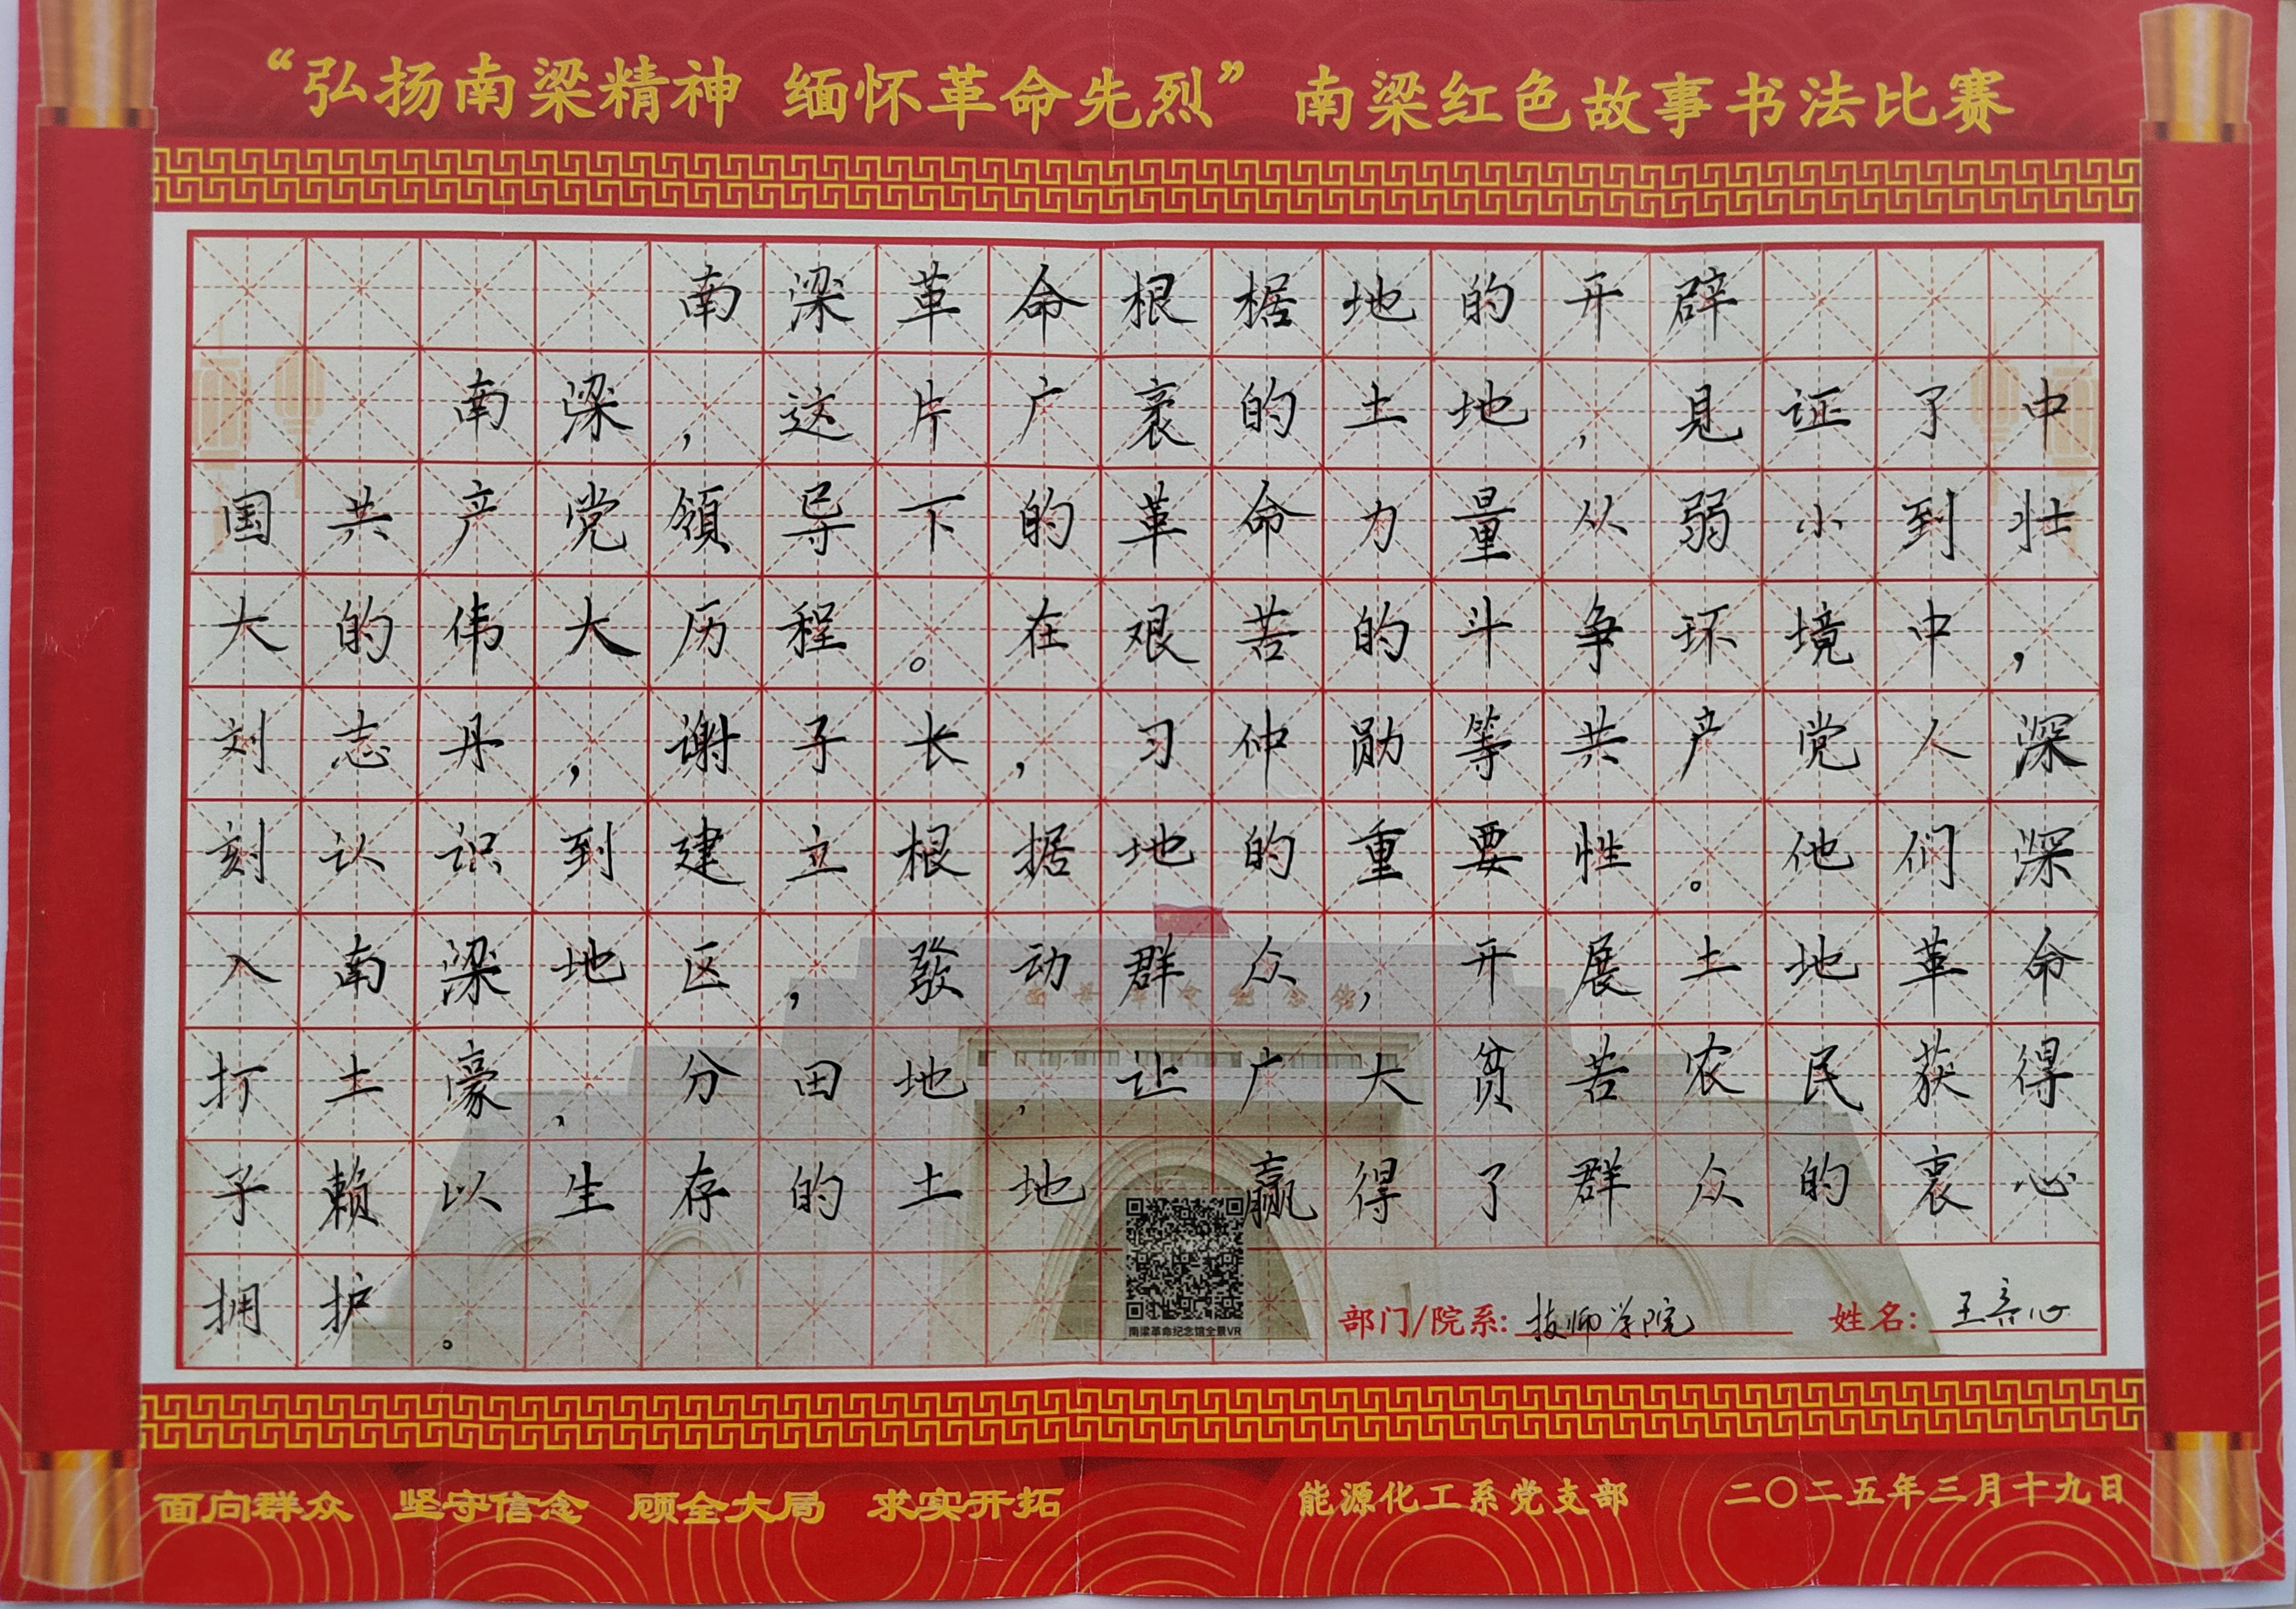 “弘扬南梁精神 缅怀革命先烈”南梁红色故事书法比赛
南梁革命根据地的开辟
南梁，这片广袤的土地，见证了中
国共产党領导下的革命力量从弱小到壮
大的伟大历程。在艰苦的斗争环境中，
刘志丹，谢子长，习仲勋等共产党人深
刻认识到建立根据地的重要性。他们深
入南梁地区，發动群众，开展土地革命
打土豪，分田地，让广大贫苦农民获得
予赖以生存的土地 赢得了群众的衷心
拥护。
南梁革命纪念馆全景VR
部门/院系：技师学院 姓名：王心
面向群众 坚守信念 顾全大局 求实开拓 能源化工系党支部 二〇二五年三月十九日